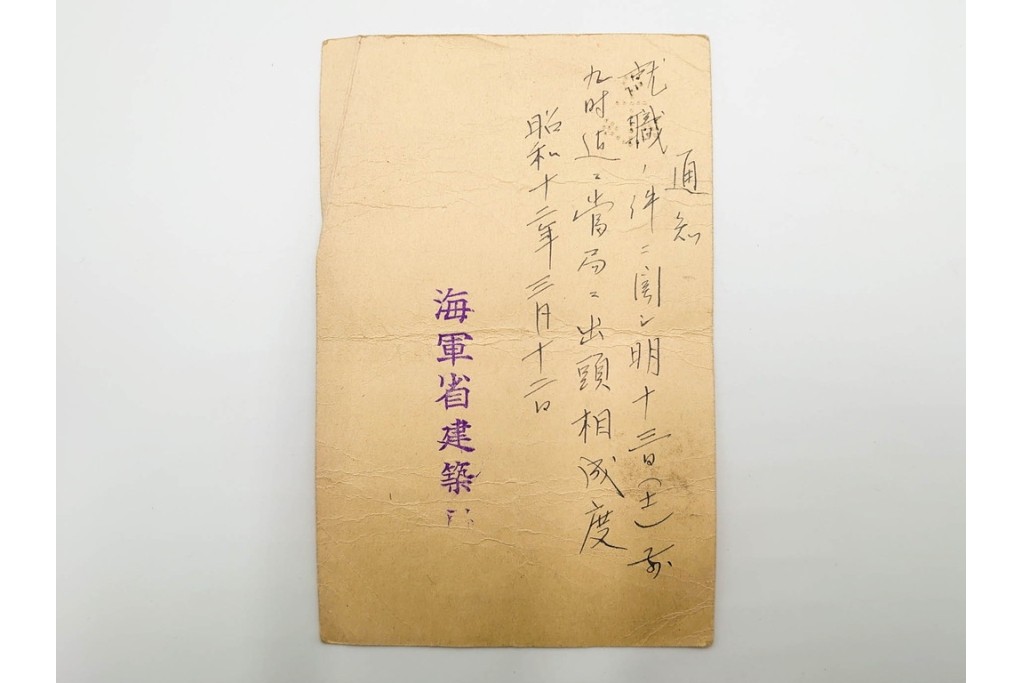 通知
就職ノ件ニ関シ明十三日(土)前
九時迠ニ當局ニ出頭相成度
昭和十二年三月十二日
海軍省建築